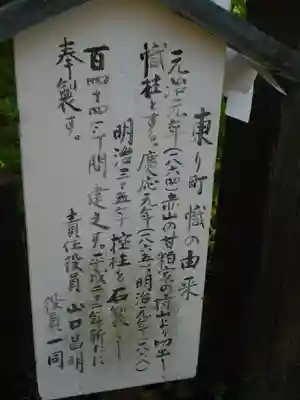 東り町幟の由来
元治元年(一八六四)赤山の甘粕家の持山より切出し
幟柱とする。慶応元年(一八六五)明治元年(一八六八)
明治三十五年控柱を石製とし
百四十四年間建之す。平成二十二年新たに
奉製す。
責任役員 山口昌明
役員一同